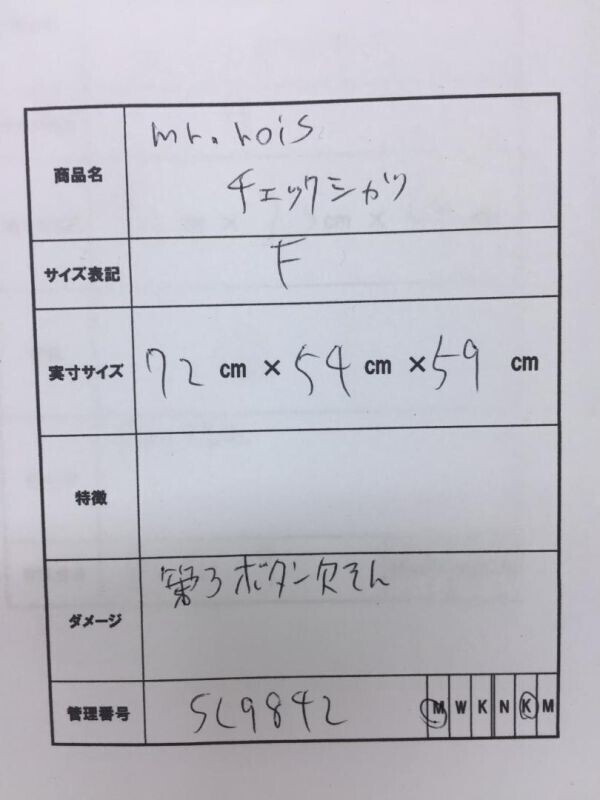 商品名
mr.rois
チェックシャツ
サイズ表記
F
実寸サイズ
72 cm × 54 cm × 59 cm
特徴
ダメージ
第3ボタン欠そん
管理番号
SL9842
M W K N K M